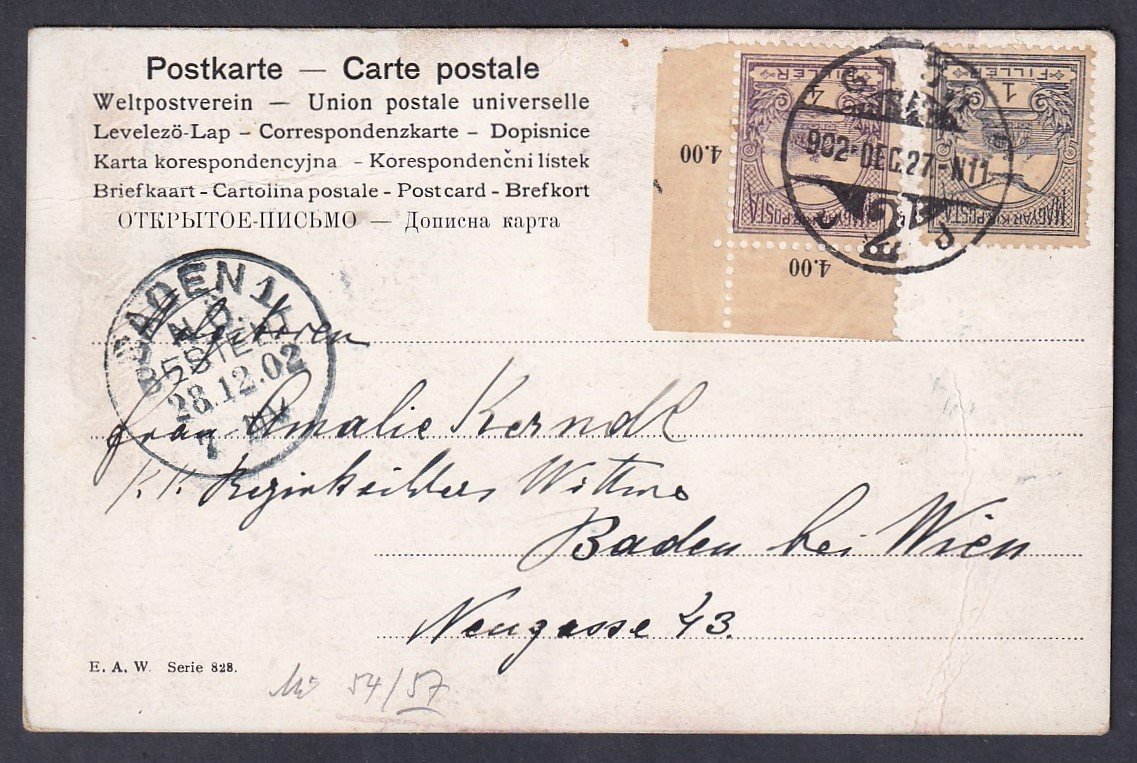 Postkarte — Carte postale
Weltpostverein — Union postale universelle
Levelezö-Lap – Correspondenzkarte – Dopisnice
Karta korespondencyjna - Korespondenčni lístek
Briefkaart - Cartolina postale - Postcard - Brefkort
ОТКРЫТОЕ-ПИСЬМО — Дописна карта
4 FILLÉR
MAGYAR KIR. POSTA
4.00
4.00
1 FILLÉR
MAGYAR KIR. POSTA
GYŐR
902·DEC.27-N11
2
BADEN 1
N.Ö.
BESTELLT
28.12.02
7
Frau Amalie Kerndl
K.K. Wittwe
Baden bei Wien
Neugasse 43.
E. A. W. Serie 828.
54/57